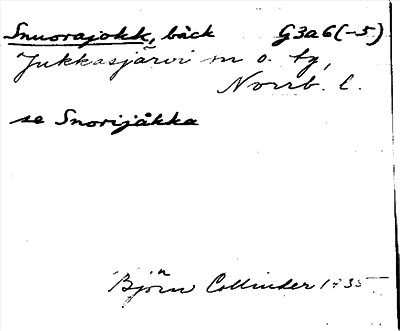 Snuorajokk, bäck G3a6(-5)
Jukkasjärvi sn o. tg,
Norrb. l.
se Snorijåkka
Björn Collinder 1935